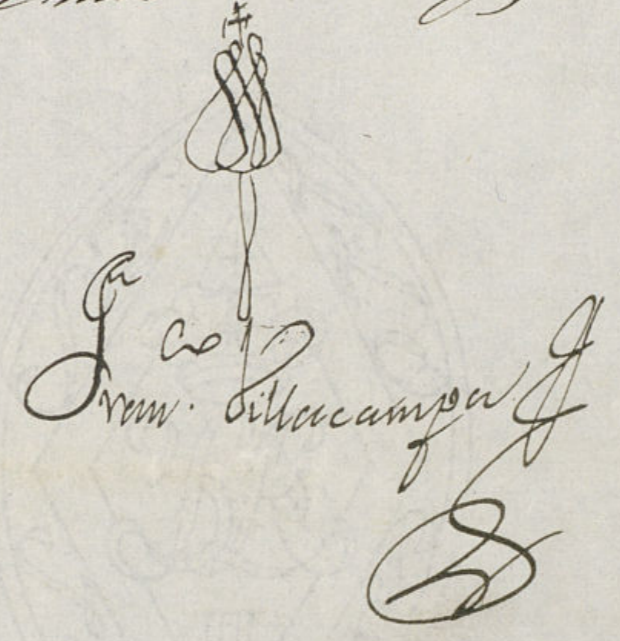 Fran.co Villacampa